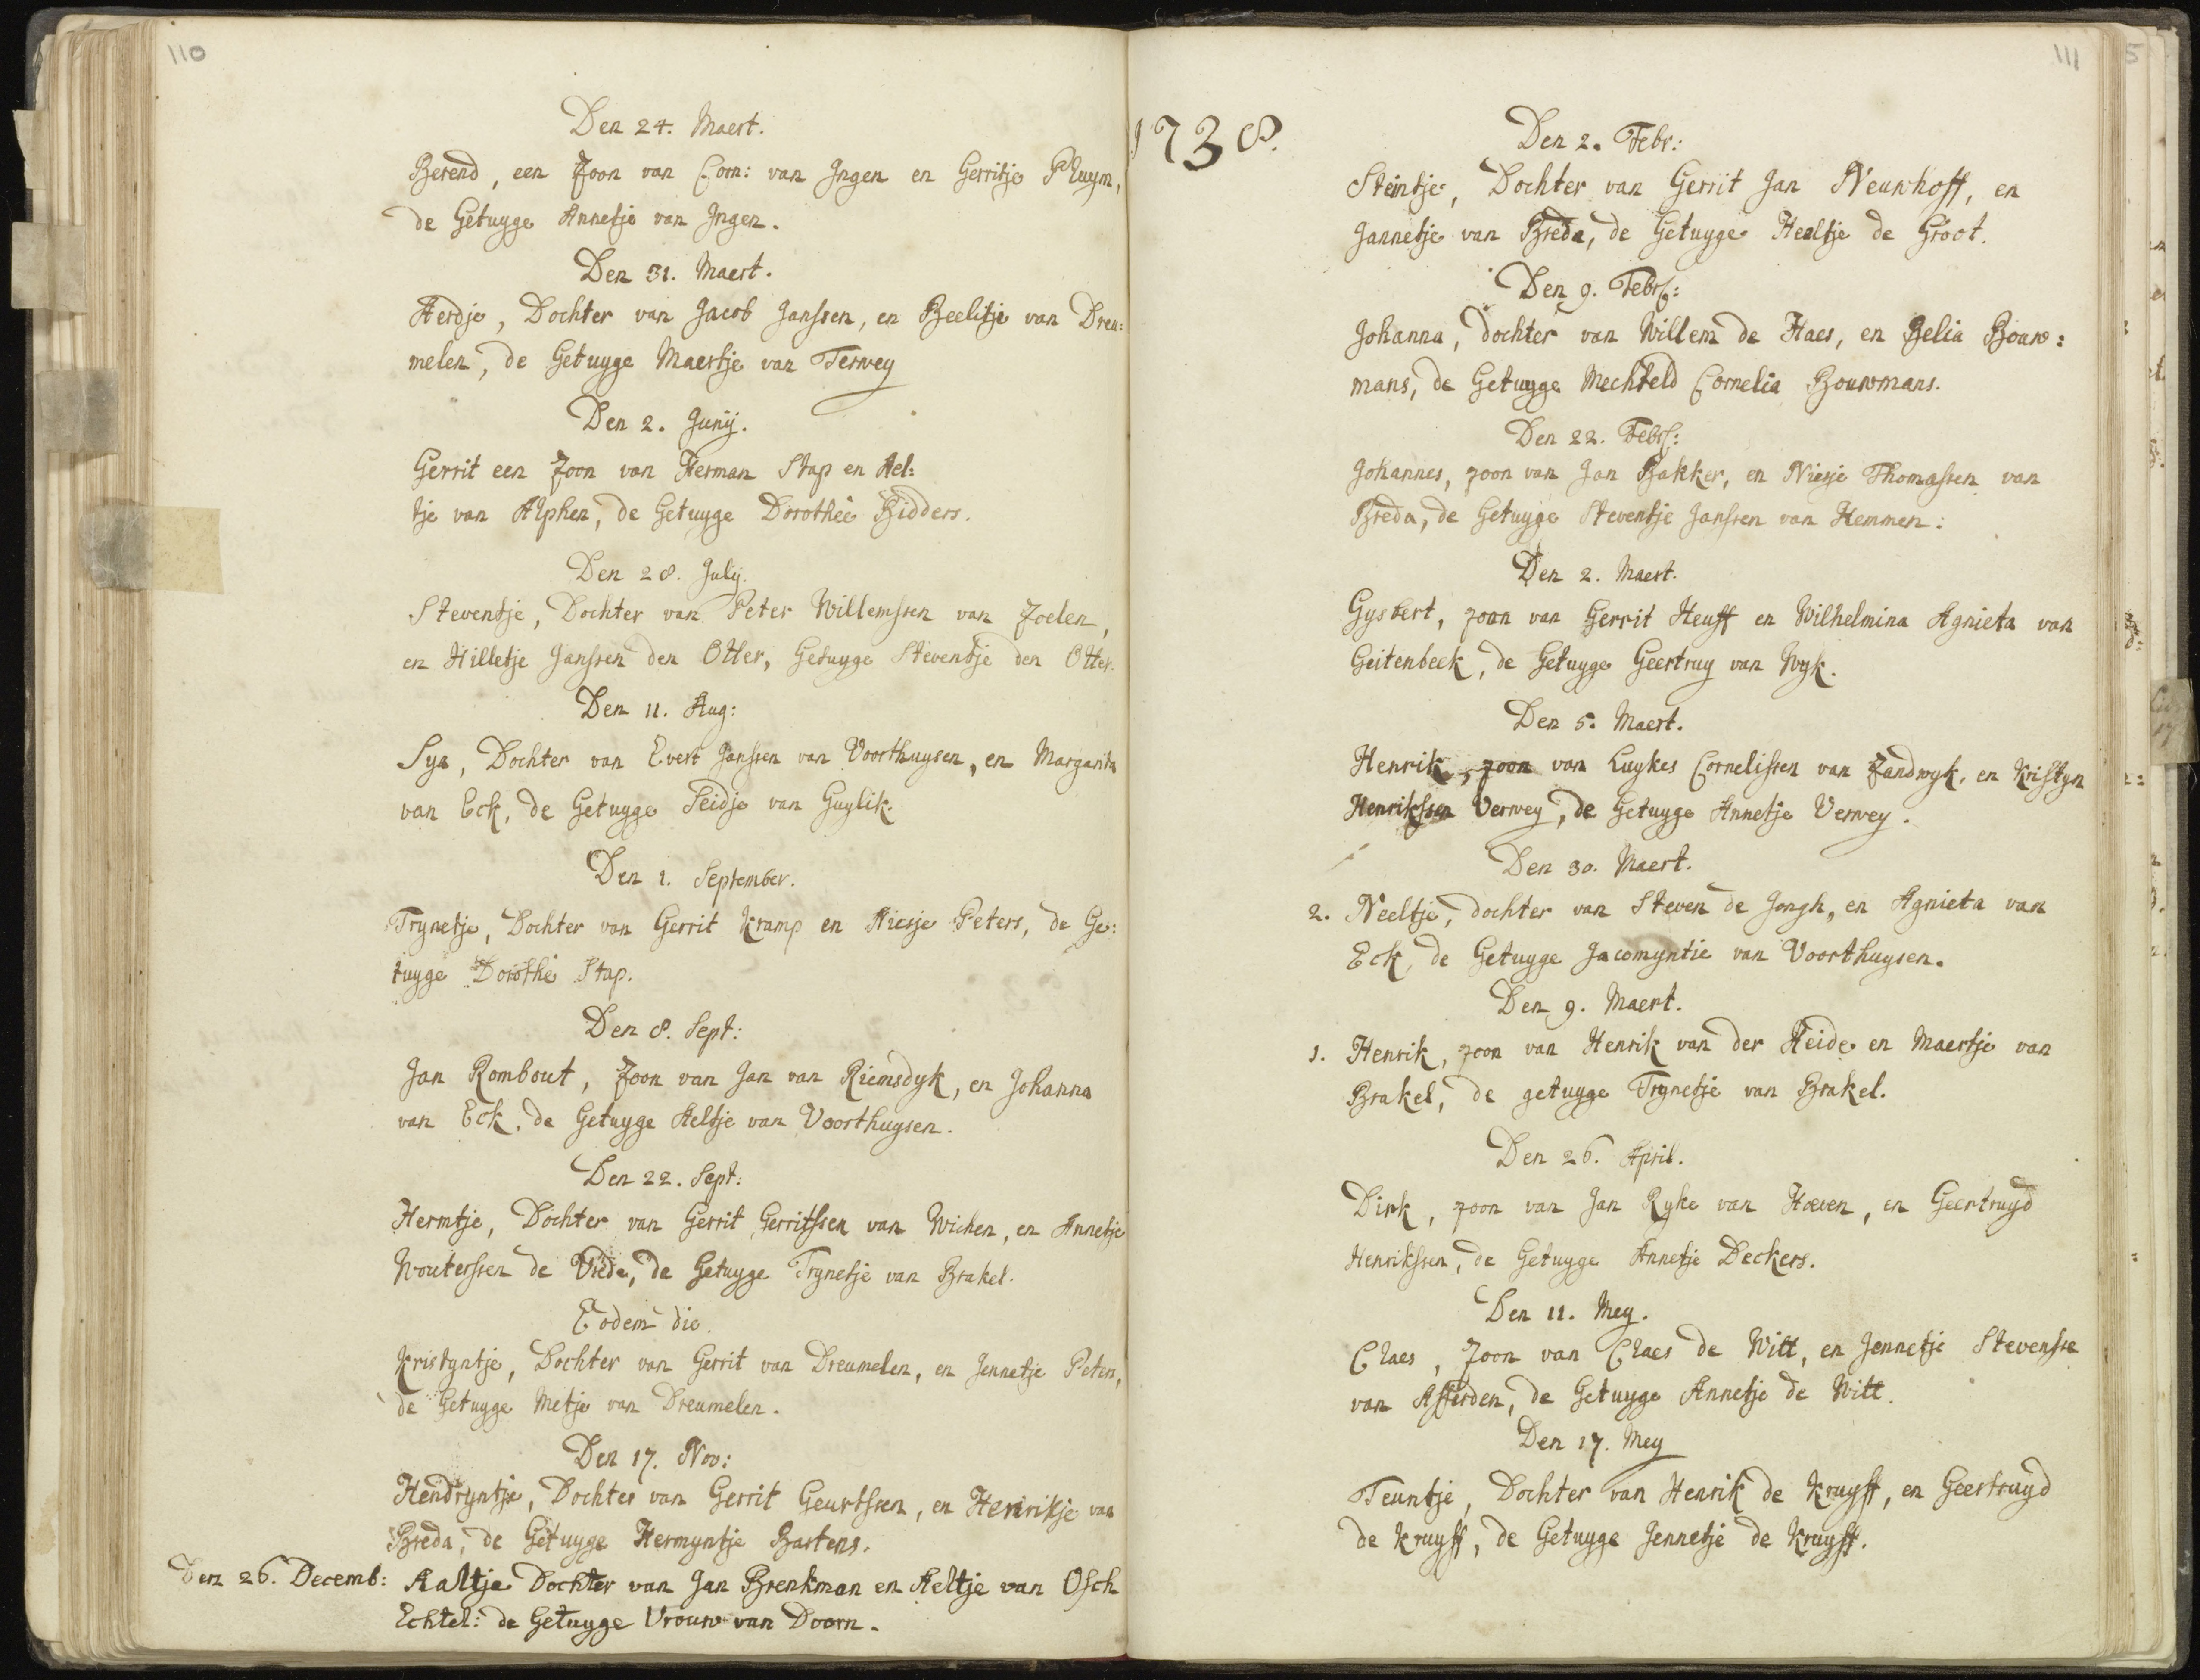 110
Den 24. Maert.
Berend, een Zoon van Corn: van Ingen en Gerritje Pluym,
de Getuyge Annetje van Ingen.
Den 31. Maert.
Aerdje, Dochter van Jacob Janssen, en Beelitje van Dreu:
melen, de Getuyge Maertje van Terwey
Den 2. Junij.
Gerrit een Zoon van Herman Stap en Ael:
tje van Alphen, de Getuyge Dorothee Bidders.
Den 28. July.
Steventje, Dochter van Peter Willemssen van Zoelen,
en Hilletje Janssen den Otter, Getuyge Steventje den Otter.
Den 11. Aug:
Sya, Dochter van Evert Janssen van Voorthuysen, en Margarita
van Eck, de Getuyge Seidje van Guylik.
Den 1. September.
Trynetje, Dochter van Gerrit Kramp en Aiesje Peters, de Ge:
tuyge Dorothe Stap.
Den 8. Sept:
Jan Rombout, Zoon van Jan van Riemsdyk, en Johanna
van Eck, de Getuyge Aeltje van Voorthuysen.
Den 22. Sept:
Hermtje, Dochter van Gerrit Gerritssen van Wichen, en Annetje
Wouterssen de Vrede, de Getuyge Trynetje van Brakel.
Eodem die.
Kristyntje, Dochter van Gerrit van Dreumelen, en Jennetje Peters,
de Getuyge Metje van Dreumelen.
Den 17. Nov:
Hendryntje, Dochter van Gerrit Geurtssen, en Henrikje van
Breda, de Getuyge Hermyntje Bartens.
Den 26. Decemb: Aaltje Dochter van Jan Brenkman en Aeltje van Osch
Echtel: de Getuyge Vrouw van Doorn.
111
1738.
Den 2. Febr:
Steintje, Dochter van Gerrit Jan Neuwhoff, en
Jannetje van Breda, de Getuyge Heeltje de Groot.
Den 9. Febr:
Johanna, dochter van Willem de Haes, en Belia Bouw:
mans, de Getuyge Mechteld Cornelia Bouwmans.
Den 22. Febr:
Johannes, zoon van Jan Bakker, en Niesje Thomassen van
Breda, de Getuyge Steventje Janssen van Hemmen:
Den 2. Maert.
Gysbert, zoon van Gerrit Heuff en Wilhelmina Agnieta van
Geitenbeek, de Getuyge Geertruy van Wyk.
Den 5. Maert.
Henrik, zoon van Luykes Cornelissen van Zandwyk, en Kristyn
Henrikssen Verwey, de Getuyge Annetje Verwey.
Den 30. Maert.
2. Neeltje, dochter van Steven de Jongh, en Agnieta van
Eck, de Getuyge Jacomyntie van Voorthuysen.
Den 9. Maert.
1. Henrik, zoon van Henrik van der Heide en Maertje van
Brakel, de getuyge Trynetje van Brakel.
Den 26. April.
Dirk, zoon van Jan Ryke van Hoeven, en Geertruyd
Henrikssen, de Getuyge Annetje Deckers.
Den 11. Mey.
Claes, Zoon van Claes de Witt, en Jennetje Stevensse
van Afferden, de Getuyge Annetje de Witt.
Den 17. Mey
Teuntje, Dochter van Henrik de Kruyff, en Geertruyd
de Kruyff, de Getuyge Jennetje de Kruyff.